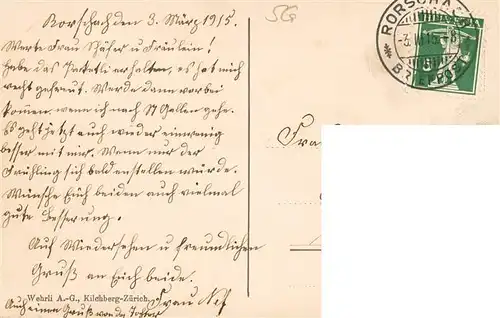 Rorschach den 3. März 1915.
SG
Werte Frau Schäfer u Fräulein!
Habe das Paketli erhalten, es hat mich
recht gefreut. Werde dann vorbei
kommen wenn ich nach St Gallen gehe.
Es geht jetzt auch wieder ein wenig
besser mit mir. Wenn nur der
Frühling sich bald einstellen würde.
Wünsche Euch beiden auch vielmal
gute Besserung.
Auf Wiedersehen u freundlichen
Gruß an Euch beide.
Frau Nef
Auch einen Gruß von der Tochter
Wehrli A.-G., Kilchberg-Zürich.
Fra
RORSCHACH
-3.III.15.-8
BRIEFPOST
5